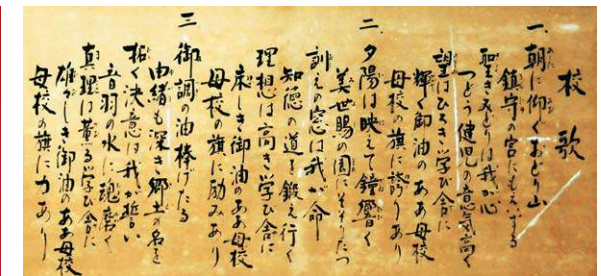 校歌
一、朝に仰ぐみどり山
鎮守の宮にもえいずる
聖きみどりは我が心
つどう健児の意気高く
望はひろき学び舎に
輝く御油のああ母校
母校の旗に誇りあり
二、夕陽は映えて鐘響く
美世賜の園にそそりたつ
訓えの窓は我が命
知徳の道を鍛え行く
理想は高き学び舎に
床しき御油のああ母校
母校の旗に励みあり
三、御調の油捧げたる
由緒も深き郷土の名を
拓く決意は我が誓い
音羽の水に魂磨く
真理は薫る学び舎に
雄々しき御油のああ母校
母校の旗に力あり